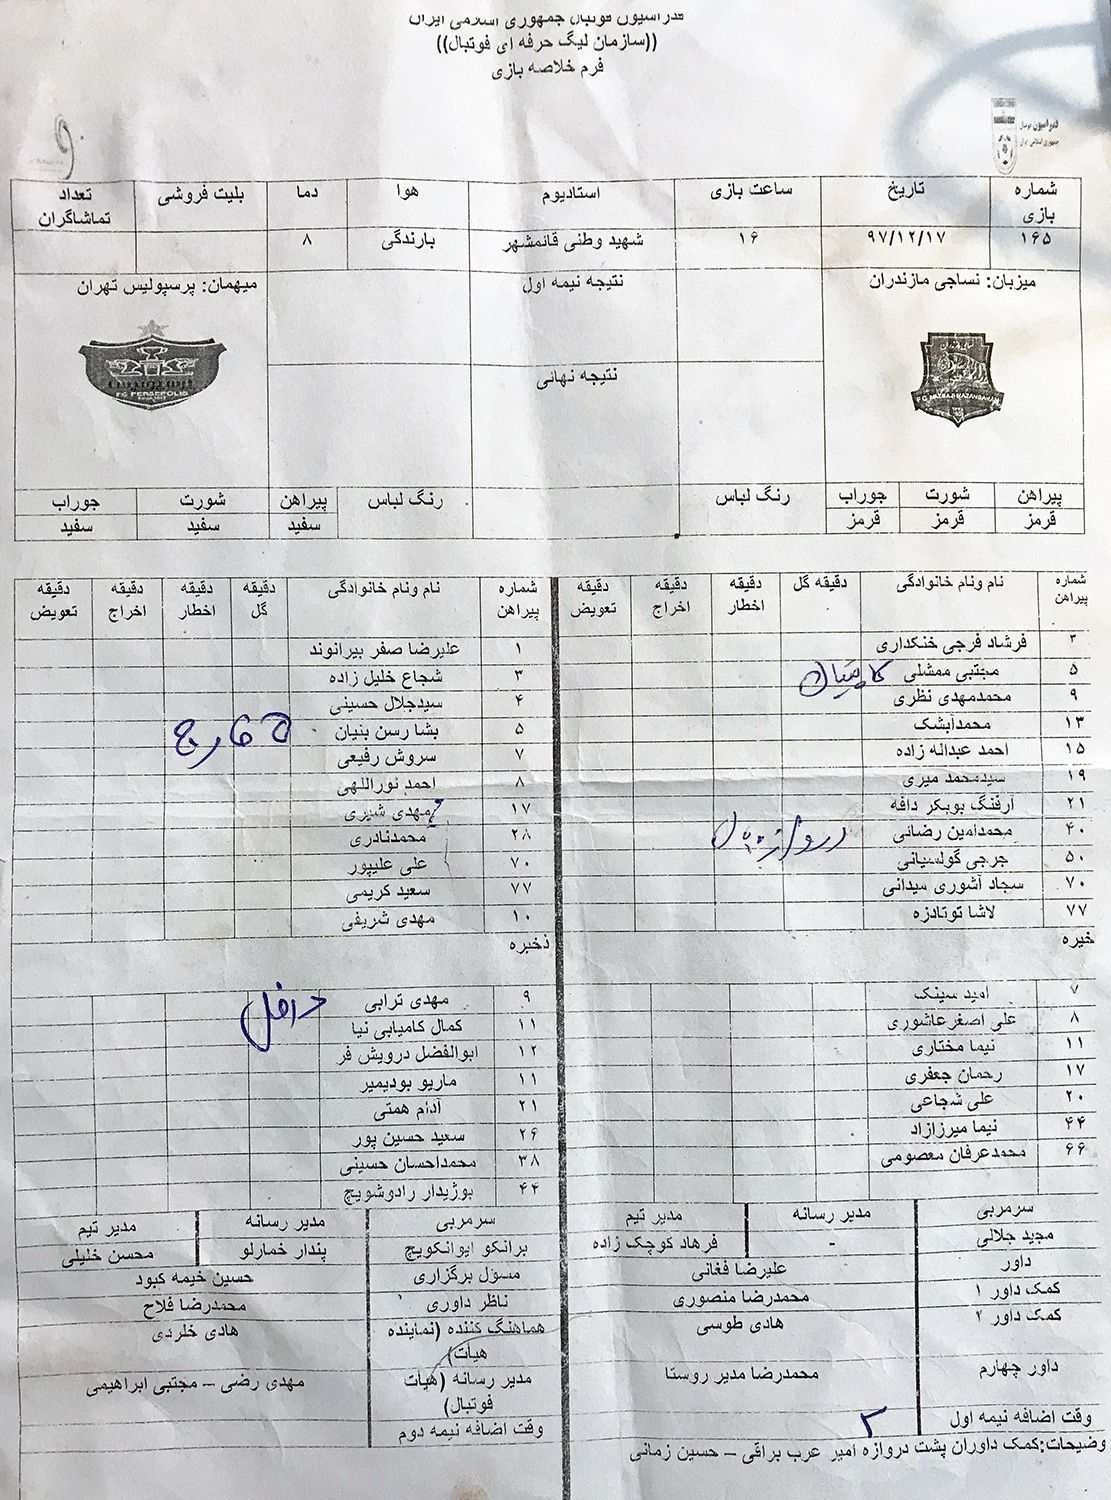 فدراسیون فوتبال جمهوری اسلامی ایران
((سازمان لیگ حرفه ای فوتبال))
فرم خلاصه بازی
فدراسیون فوتبال
جمهوری اسلامی ایران
شماره بازی تاریخ ساعت بازی استادیوم هوا دما بلیت فروشی تعداد تماشاگران
۱۶۵ ۹۷/۱۲/۱۷ ۱۶ شهید وطنی قائمشهر بارندگی ۸
میزبان: نساجی مازندران نتیجه نیمه اول میهمان: پرسپولیس تهران
نتیجه نهائی
FC PERSEPOLIS
پیراهن شورت جوراب رنگ لباس رنگ لباس پیراهن شورت جوراب
قرمز قرمز قرمز سفید سفید سفید
شماره پیراهن نام ونام خانوادگی دقیقه گل دقیقه اخطار دقیقه اخراج دقیقه تعویض
۳ فرشاد فرجی خنکداری
۵ مجتبی ممشلی کاپیتان
۹ محمدمهدی نظری
۱۳ محمدآبشک
۱۵ احمد عبداله زاده
۱۹ سیدمحمد میری
۲۱ آرفنگ بوبکر دافه
۴۰ محمدامین رضائی دروازه بان
۵۰ جرجی گولسیانی
۷۰ سجاد آشوری میدانی
۷۷ لاشا توتادزه
خیره
۷ امید سینک
۸ علی اصغرعاشوری
۱۱ نیما مختاری
۱۷ رحمان جعفری
۲۰ علی شجاعی
۴۴ نیما میرزازاد
۶۶ محمدعرفان معصومی
شماره پیراهن نام ونام خانوادگی دقیقه گل دقیقه اخطار دقیقه اخراج دقیقه تعویض
۱ علیرضا صفر بیرانوند
۳ شجاع خلیل زاده
۴ سیدجلال حسینی
۵ بشا رسن بنیان خارج
۷ سروش رفیعی
۸ احمد نوراللهی
۱۷ مهدی شیری
۲۸ محمدنادری
۷۰ علی علیپور
۷۷ سعید کریمی
۱۰ مهدی شریفی
ذخیره
۹ مهدی ترابی داخل
۱۱ کمال کامیابی نیا
۱۲ ابوالفضل درویش فر
۱۱ ماریو بودیمیر
۲۱ آدام همتی
۲۶ سعید حسین پور
۳۸ محمداحسان حسینی
۴۴ بوژیدار رادوشویچ
سرمربی مدیر رسانه مدیر تیم
مجید جلالی - فرهاد کوچک زاده
داور علیرضا فغانی
کمک داور ۱ محمدرضا منصوری
کمک داور ۲ هادی طوسی
داور چهارم محمدرضا مدیر روستا
وقت اضافه نیمه اول ۳
سرمربی مدیر رسانه مدیر تیم
برانکو ایوانکویچ پندار خمارلو محسن خلیلی
مسؤل برگزاری حسین خیمه کبود
ناظر داوری محمدرضا فلاح
هماهنگ کننده (نماینده هیات) هادی خلردی
مدیر رسانه (هیات فوتبال) مهدی رضی – مجتبی ابراهیمی
وقت اضافه نیمه دوم
وضیحات:کمک داوران پشت دروازه امیر عرب براقی – حسین زمانی